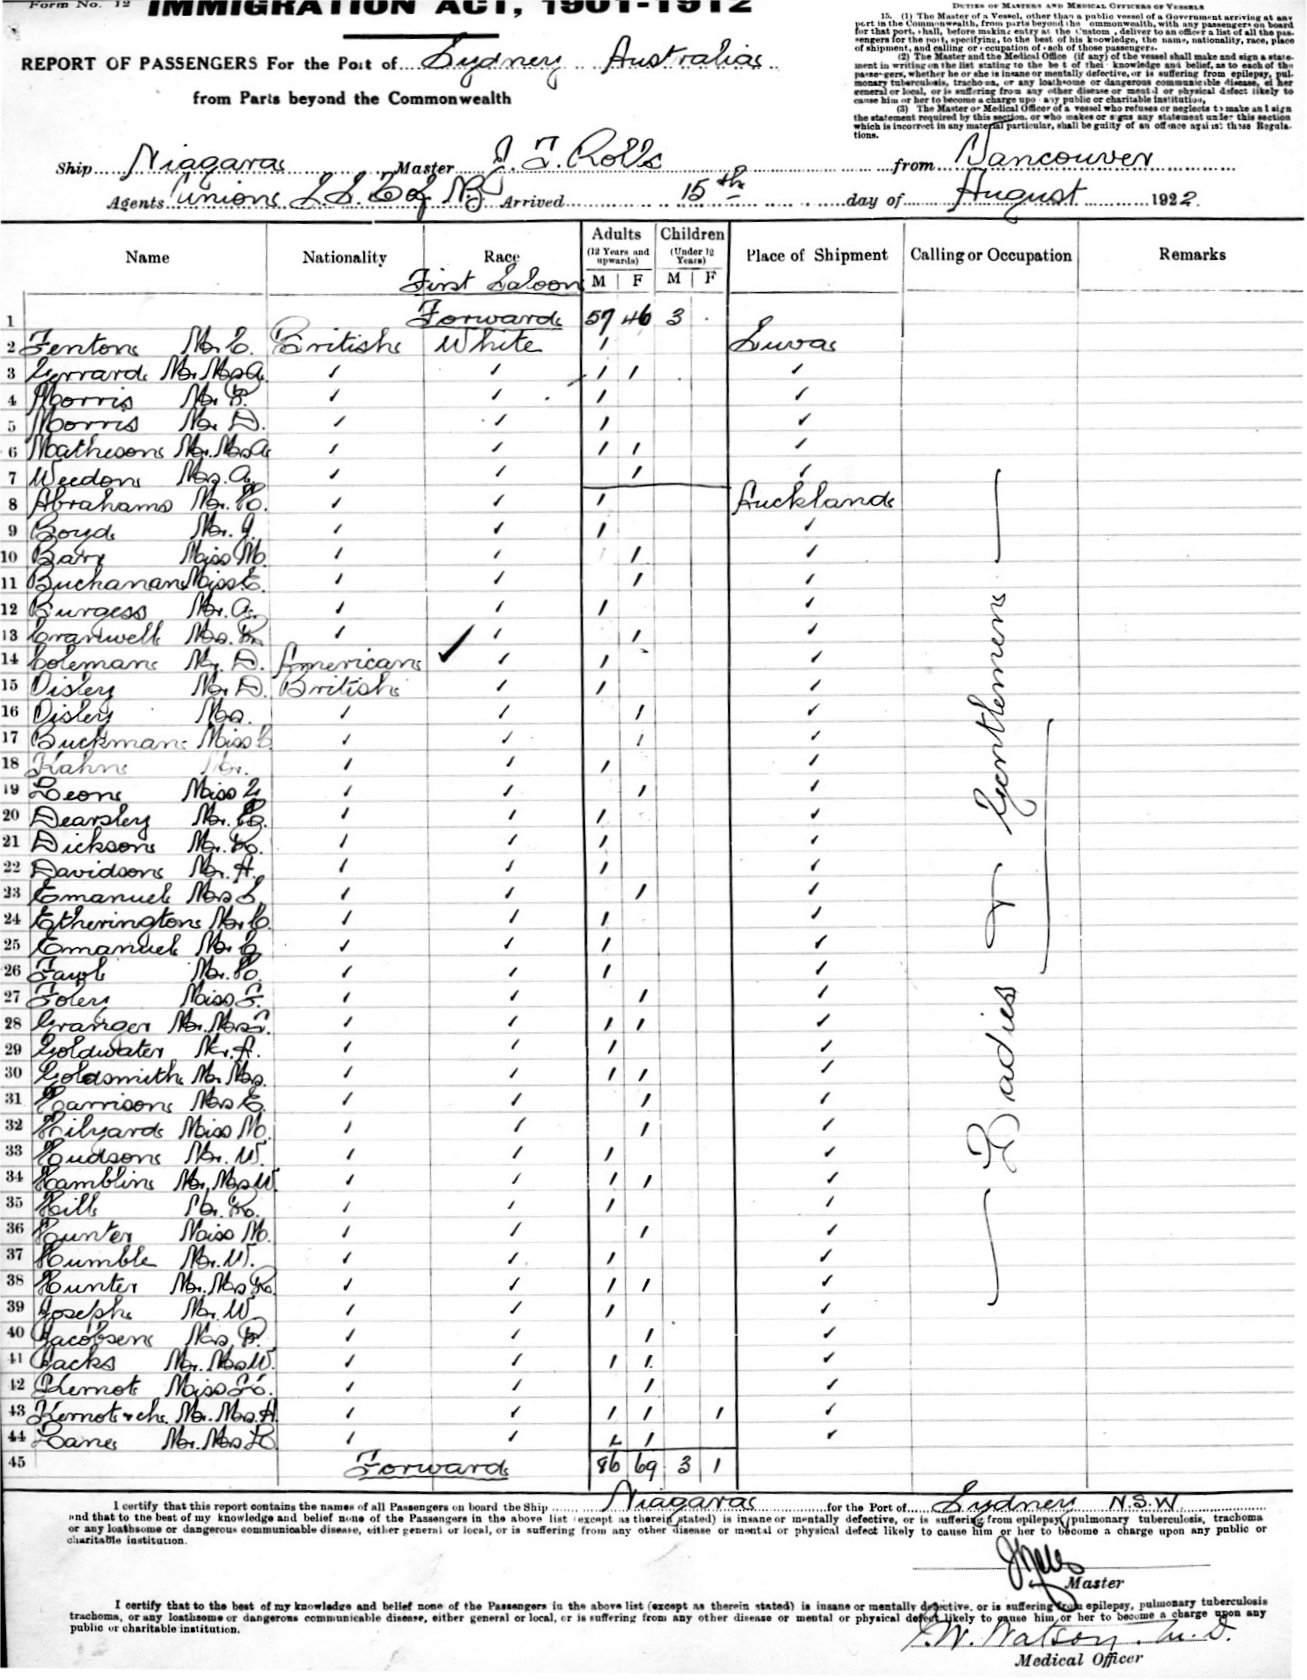 Form No. 12
IMMIGRATION ACT, 1901-1912
REPORT OF PASSENGERS For the Port of Sydney Australia
from Parts beyond the Commonwealth
DUTIES OF MASTERS AND MEDICAL OFFICERS OF VESSELS
15. (1) The Master of a Vessel, other than a public vessel of a Government arriving at any
port in the Commonwealth, from parts beyond the commonwealth, with any passengers on board
for that port, shall, before making entry at the Custom, deliver to an officer a list of all the pas-
sengers for the port, specifying, to the best of his knowledge, the name, nationality, race, place
of shipment, and calling or occupation of each of those passengers.
(2) The Master and the Medical Office (if any) of the vessel shall make and sign a state-
ment in writing on the list stating to the best of their knowledge and belief, as to each of the
passengers, whether he or she is insane or mentally defective, or is suffering from epilepsy, pul-
monary tuberculosis, trachoma, or any loathsome or dangerous communicable disease, either
general or local, or is suffering from any other disease or mental or physical defect likely to
cause him or her to become a charge upon any public or charitable institution,
(3) The Master or Medical Officer of a vessel who refuses or neglects to make and sign
the statement required by this section, or who makes or signs any statement under this section
which is incorrect in any material particular, shall be guilty of an offence against these Regula-
tions.
Ship Niagara Master J. T. Rolls from Vancouver
Agents Union S.S. Co of NZ Arrived 15th day of August 1922.
Name Nationality Race Adults (12 Years and upwards) Children (Under 12 Years) Place of Shipment Calling or Occupation Remarks
First Saloon M F M F
1 Forward 57 46 3
2 Fenton Mr. C. British White 1 Suva
3 Gerrard Mr. Mrs A. ✓ ✓ 1 1 ✓
4 Morris Mr. ✓ ✓ 1 ✓
5 Morris Mr. D. ✓ ✓ 1 ✓
6 Matheson Mr. Mrs A ✓ ✓ 1 1 ✓
7 Weedon Mrs. A. ✓ ✓ 1 ✓
8 Abrahams Mr. ✓ ✓ 1 Auckland
9 Boyd Mr. J. ✓ ✓ 1 ✓
10 Barr Miss M. ✓ ✓ 1 ✓
11 Buchanan Miss E. ✓ ✓ 1 ✓
12 Burgess Mr. A. ✓ ✓ 1 ✓
13 Cranwell Mrs. R. ✓ ✓ 1 ✓
14 Coleman Mr. D. American ✓ ✓ 1 ✓
15 Disley Mr. D. British ✓ 1 ✓
16 Disley Mrs. ✓ ✓ 1 ✓
17 Buckman Miss C ✓ ✓ 1 ✓
18 Kahn Mr. ✓ ✓ 1 ✓
19 Leon Miss ✓ ✓ 1 ✓
20 Dearsley Mr. ✓ ✓ 1 ✓
21 Dickson Mr. R. ✓ ✓ 1 ✓
22 Davidson Mr. A. ✓ ✓ 1 ✓
23 Emanuel Mrs S. ✓ ✓ 1 ✓
24 Etherington Mr. C. ✓ ✓ 1 ✓
25 Emanuel Mr. ✓ ✓ 1 ✓
26 Mr. ✓ ✓ 1 ✓
27 Foley Miss F. ✓ ✓ 1 ✓
28 Granger Mr. Mrs ✓ ✓ 1 1 ✓
29 Goldwater Mr. A. ✓ ✓ 1 ✓
30 Goldsmith Mr. Mrs. ✓ ✓ 1 1 ✓
31 Harrison Mrs E. ✓ ✓ 1 ✓
32 Hilyard Miss M. ✓ ✓ 1 ✓
33 Hudson Mr. W. ✓ ✓ 1 ✓
34 Hamblin Mr. Mrs W. ✓ ✓ 1 1 ✓
35 Hill Mr. R. ✓ ✓ 1 ✓
36 Hunter Miss M. ✓ ✓ 1 ✓
37 Humble Mr. W. ✓ ✓ 1 ✓
38 Hunter Mr. Mrs R. ✓ ✓ 1 1 ✓
39 Joseph Mr. W. ✓ ✓ 1 ✓
40 Jacobsen Mrs. ✓ ✓ 1 ✓
41 Jacks Mr. Mrs W. ✓ ✓ 1 1 ✓
42 Kernot Miss ✓ ✓ 1 ✓
43 Kernot & ch. Mr. Mrs. A. ✓ ✓ 1 1 1 ✓
44 Lane Mr. Mrs ✓ ✓ 1 1 ✓
45 Forward 86 69 3 1
Ladies & Gentlemen
I certify that this report contains the names of all Passengers on board the Ship Niagara for the Port of Sydney N.S.W.
and that to the best of my knowledge and belief none of the Passengers in the above list (except as therein stated) is insane or mentally defective, or is suffering from epilepsy, pulmonary tuberculosis, trachoma
or any loathsome or dangerous communicable disease, either general or local, or is suffering from any other disease or mental or physical defect likely to cause him or her to become a charge upon any public or
charitable institution.
Master
I certify that to the best of my knowledge and belief none of the Passengers in the above list (except as therein stated) is insane or mentally defective, or is suffering from epilepsy, pulmonary tuberculosis
trachoma, or any loathsome or dangerous communicable disease, either general or local, or is suffering from any other disease or mental or physical defect likely to cause him or her to become a charge upon any
public or charitable institution.
W. Watson. M.D.
Medical Officer